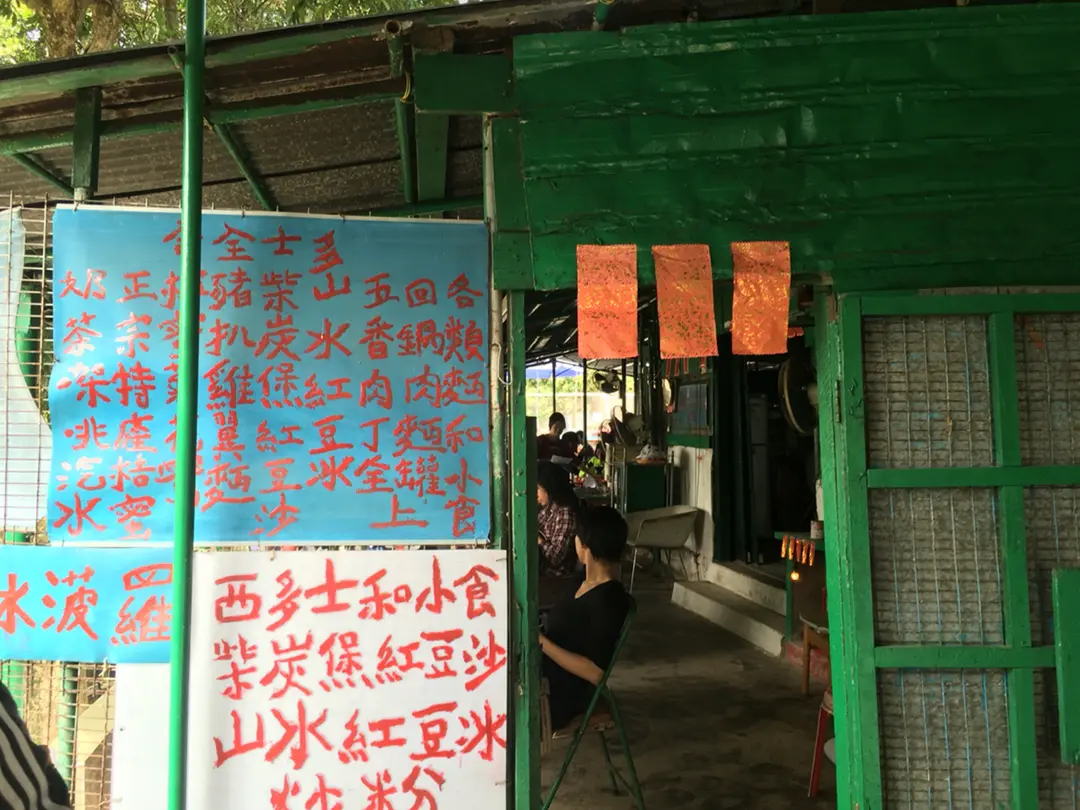 全士多
各類麵和小食
回鍋肉麵罐
五香肉丁全上
山水紅豆冰
柴炭煲紅豆沙
豬扒雞翼麵
正宗特產桔蜜
奶茶 汽水
菠羅
西多士和小食
柴炭煲紅豆沙
山水紅豆冰
炒粉